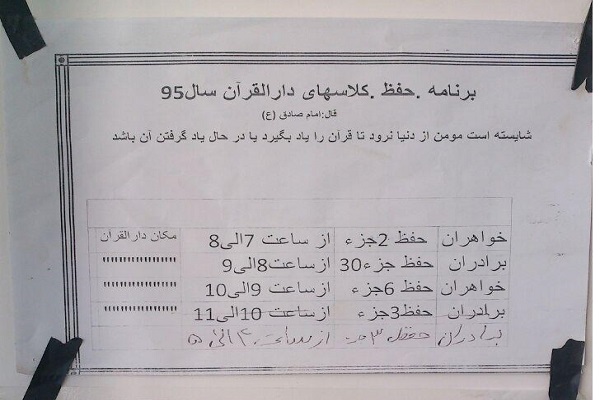 برنامه .حفظ .کلاسهای دارالقرآن سال95
قال:امام صادق (ع)
شایسته است مومن از دنیا نرود تا قرآن را یاد بگیرد یا در حال یاد گرفتن آن باشد
خواهران حفظ 2جزء از ساعت 7الی8 مکان دارالقران
برادران حفظ جزء30 ازساعت8الی9 """"""""
خواهران حفظ 6جزء ازساعت 9الی10 """"""""
برادران حفظ3جزء ازساعت 10الی11 """"""""
برادران حفظ ۳ از ساعت ۴ الی ۵